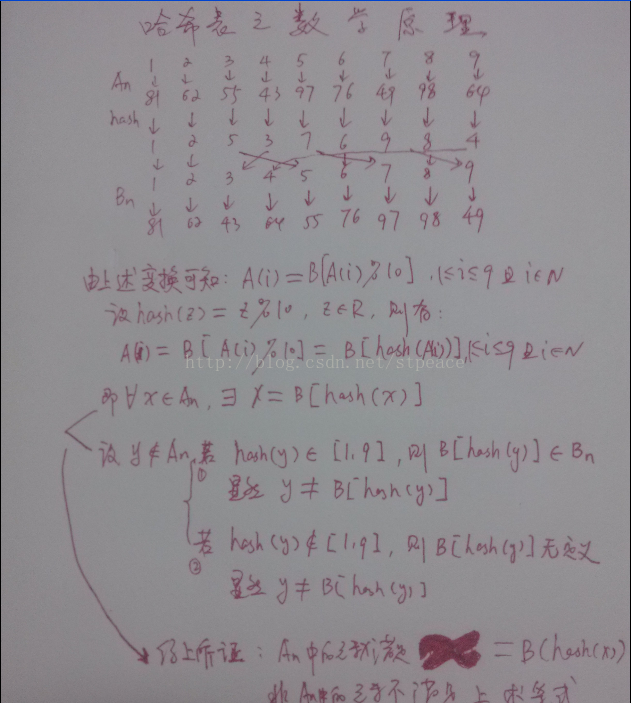 哈希表之数学原理
1 2 3 4 5 6 7 8 9
An ↓ ↓ ↓ ↓ ↓ ↓ ↓ ↓ ↓
81 62 55 43 97 76 49 98 64
hash ↓ ↓ ↓ ↓ ↓ ↓ ↓ ↓ ↓
1 2 5 3 7 6 9 8 4
1 2 3 4 5 6 7 8 9
Bn ↓ ↓ ↓ ↓ ↓ ↓ ↓ ↓ ↓
81 62 43 64 55 76 97 98 49
由上述变换可知: A(i) = B[A(i)%10], 1≤i≤9且i∈N
设hash(z) = z%10, z∈R, 则有:
A(i) = B[A(i)%10] = B[hash(A(i))], 1≤i≤9且i∈N
http://blog.csdn.net/stpeace
即∀x∈An, ∃ x = B[hash(x)]
设y∉An, 若 hash(y)∈[1,9], 则B[hash(y)]∈Bn
①
显然 y≠B[hash(y)]
若 hash(y)∉[1,9], 则B[hash(y)]无定义
②
显然 y≠B[hash(y)]
综上所证: An中的元素满足 = B(hash(x))
非An中的元素不满足上述等式